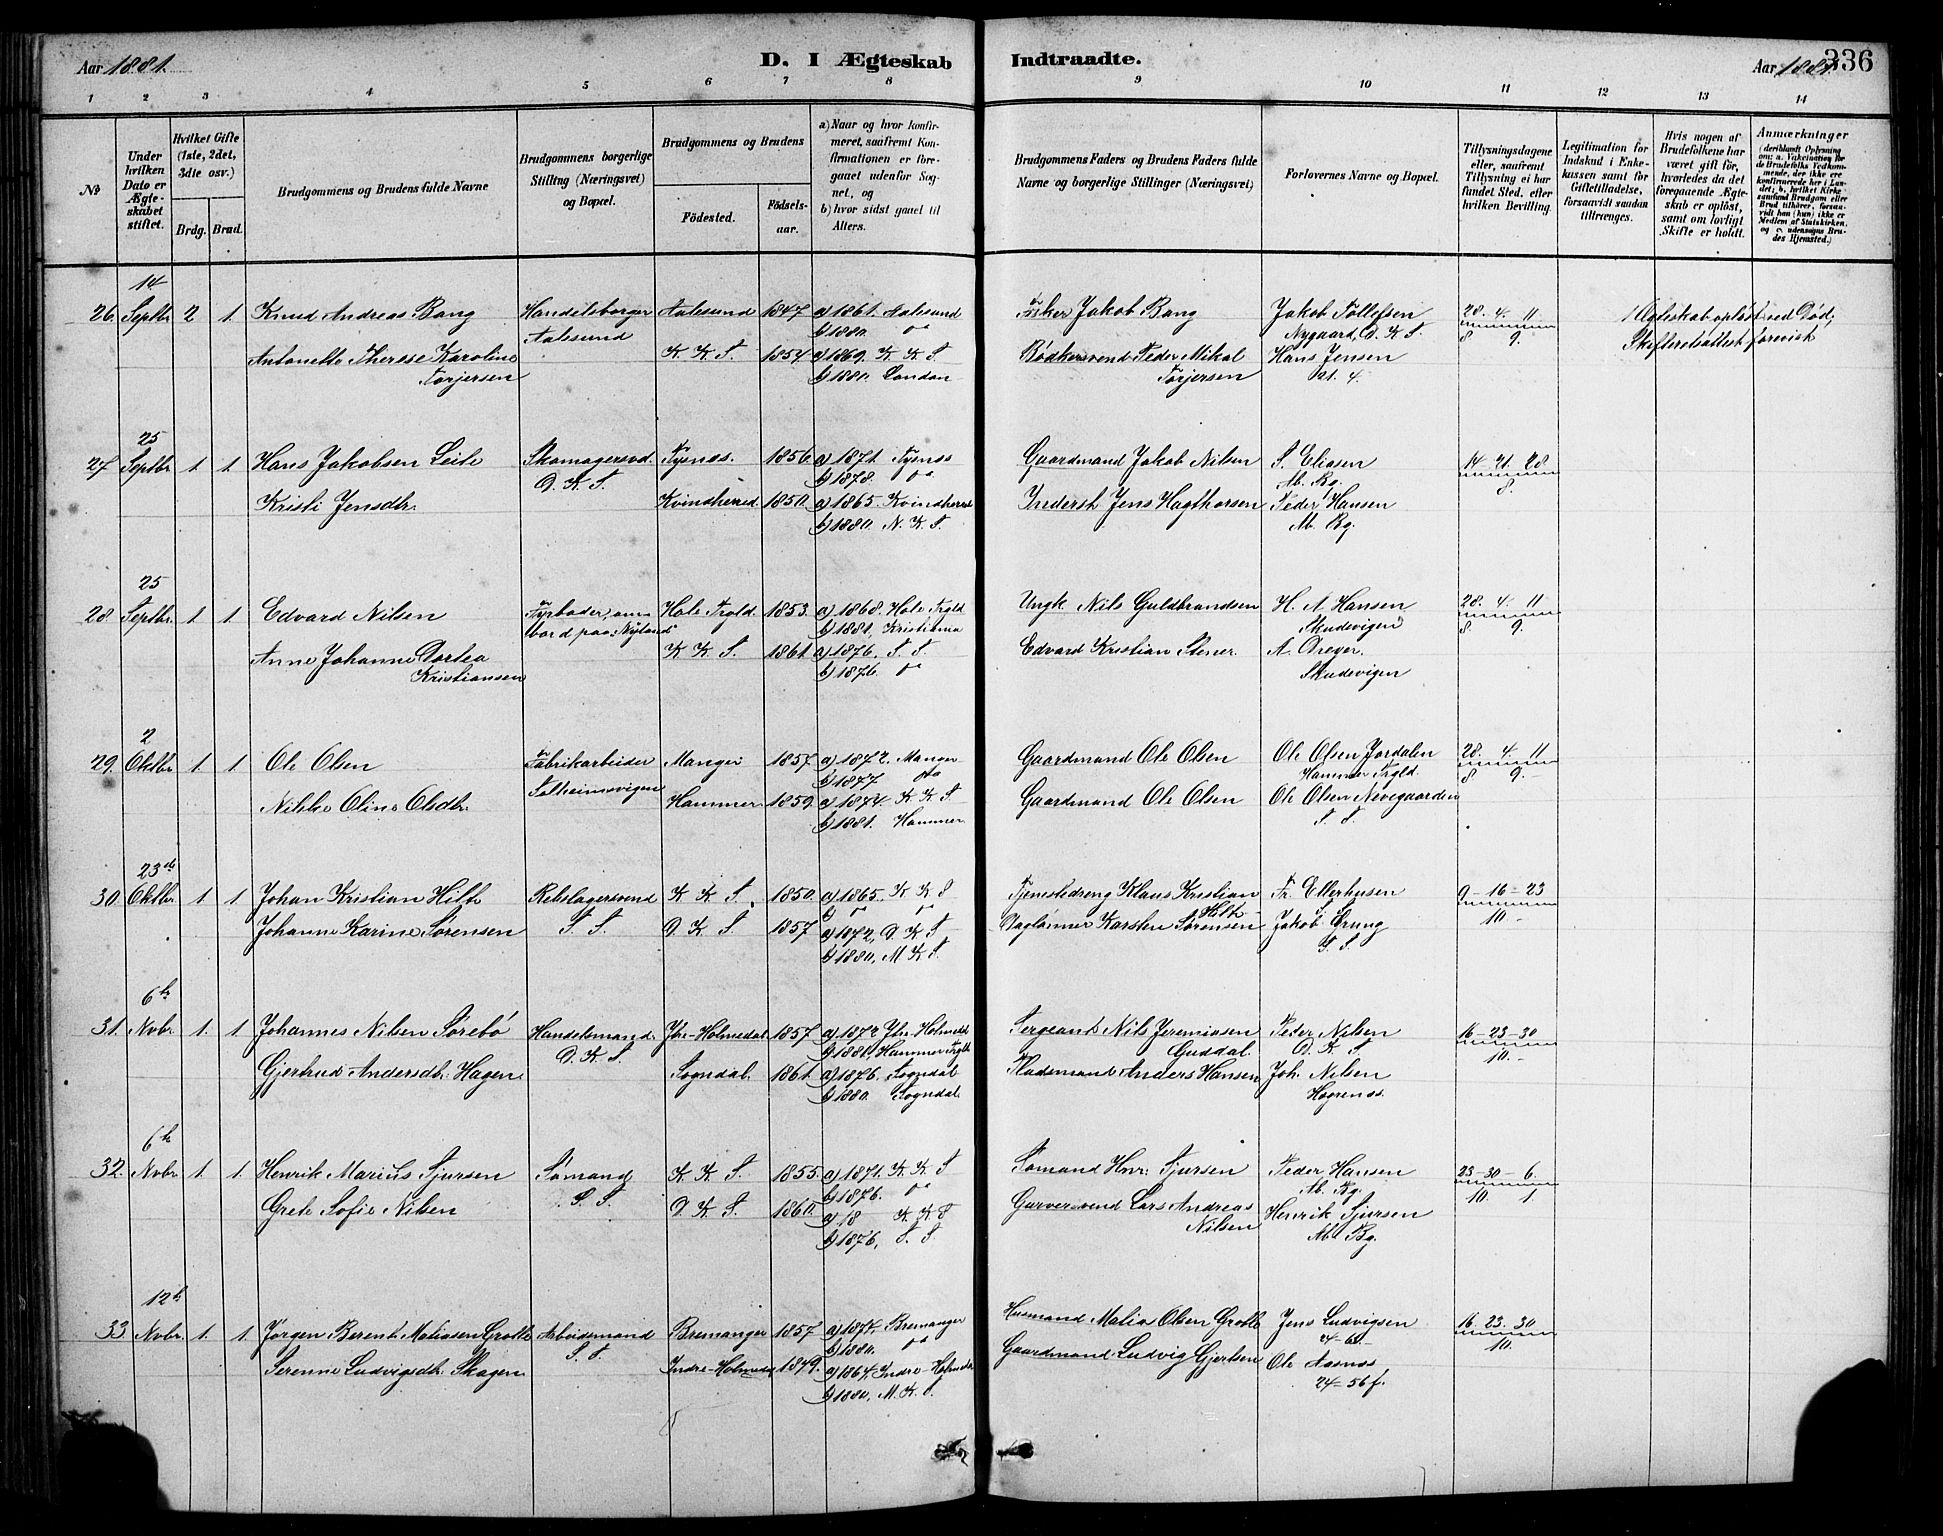 Aar 1881.
D. I Ægteskab Indtraadte.
Aar 1881.
336
1 2 3 4 5 6 7 8 9 10 11 12 13 14
No
Under hvilken Dato er Ægteskabet stiftet.
Hvilket Gifte (1ste, 2det, 3dte osv.)
Brdg. Brud.
Brudgommens og Brudens fulde Navne
Brudgommens borgerlige Stilling (Næringsvei) og Bopæl.
Brudgommens og Brudens
Födested.
Födselsaar.
a) Naar og hvor konfirmeret, saafremt Konfirmationen er foregaaet udenfor Sognet, og
b) hvor sidst gaaet til Alters.
Brudgommens Faders og Brudens Faders fulde Navne og borgerlige Stillinger (Næringsvei)
Forlovernes Navne og Bopæl.
Tillysningsdagene eller, saafremt Tillysning ei har fundet Sted, efter hvilken Bevilling.
Legitimation for Indskud i Enkekassen samt for Giftetilladelse, forsaavidt saadan tiltrænges.
Hvis nogen af Brudefolkene har været gift för, hvorledes da det foregaaende Ægteskab er oplöst, samt om lovligt Skifte er holdt.
Anmærkninger (deriblandt Oplysning om: a. Vakcination for de Brudefolks Vedkommende, der ikke ere konfirmerede her i Landet; b. hvilket Kirkesamfund Brudgom eller Brud tilhörer, forsaavidt han (hun) ikke er Medlem af Statskirken, og c. udensogns Brudes Hjemsted.)
14
26. Septbr 2 1. Knud Andreas Bang Handelsborger Aalesund 1847 a) 1861. Aalesund Fisker Jakob Bang Jakob Tollefsen 28. 4. 11 1 Ægteskab opløst ved Død;
Aalesund b) 1880. do Nygaard, D. K. S. 8 9. Skifteretsattest forevist
Antonette Therese Karoline K. K. S. 1854 a) 1869. K. K. S. Bødkersvend Peder Mikal Hans Jensen
Torjersen b) 1880. London Torjersen 21. 4.
25
27 Septbr 1. 1. Hans Jakobsen Leite Skomagersvd Tysnes. 1856. a) 1871. Tysnes Gaardmand Jakob Nilsen S. Eliasen 14 21. 28
D. K. S. b) 1878. do M. Bg. 8.
Kristi Jensdtr. Kvindherred. 1850. a) 1865. Kvindherred Inderst Jens Hagthorsen Peder Hansen
b) 1880. N. K. S. M. Bg.
25
28 Septbr. 1. 1 Edvard Nilsen Fyrbøder, om Hole Prgld. 1853. a) 1868. Hole Prgld Ungk. Nils Guldbrandsen H. A. Hansen 28. 4. 11
bord paa "Nyland" b) 1881, Kristiania Skudevigen 8. 9.
Anne Johanne Dortea K. K. S. 1861. a) 1876. S. S. Edvard Kristian Stener. A. Dreyer.
Kristiansen b) 1876. do Skudevigen
2
29. Oktbr. 1. 1. Ole Olsen Fabrikarbeider Manger 1857. a) 1872. Manger Gaardmand Ole Olsen Ole Olsen Jordalen 28. 4. 11
Solheimsvigen b) 1877 do Hammer Prgld. 8 9.
Nikke Oline Olsdtr. Hammer. 1859. a) 1874. K. K. S Gaardmand Ole Olsen Ole Olsen Nevegaarden
b) 1881. Hammer. S. S.
23de
30. Oktbr 1. 1. Johan Kristian Hilt Rebslagersvend K. K. S. 1850. a) 1865. K. K. S Tjenestedreng Klaus Kristian Fr. Ellerhusen 9-16-23
b) do do Hilt S. S. 10.
Johanne Karine Sørensen S. S. D. K. S. 1857 a) 1872, D. K. S Daglønner Karsten Sørensen Jakob Grung
b) 1880, M. K. S. S. S.
6te
31. Nvbr. 1. 1. Johannes Nilsen Sørebø Handelsmand. Ytre-Holmedal 1857 a) 1872 Ytr. Holmedl Sergeant Nils Jeremiasen Peder Nilsen 16-23-30
D. K. S. b) 1881, Hammer Prgld. Guddal. D. K. S 10.
Gjertrud Andersdtr. Hagen. Sogndal. 1861. a) 1876. Sogndal Pladsmand Anders Hansen Joh. Nilsen
b) 1880. Sogndal. Hegrenæs.
6te
32. Nvbr. 1. 1. Henrik Marius Sjursen Sømand K. K. S. 1855. a) 1871. K. K. S Sømand Hnr. Sjursen Peder Hansen 23-30-6.
S. S. b) 1876. do M. Bg. 10. 1
Grete Sofie Nilsen D. K. S. 1860. a) 18 K. K. S Garversvend Lars Andreas Henrik Sjursen
b) 1876, S. S. Nilsen M. Bg.
12te
33 Nvbr. 1. 1. Jørgen Berent Matiasen Grotle Arbeidsmand Bremanger 1857. a) 1874. Bremanger Husmand Matias Olsen Grotle Jens Ludvigsen 16. 23. 30
S. S. b) 1880. do 24-6 10.
Serenne Ludvigsdtr. Skagen Indre-Holmedal 1849. a) 1864, Indre-Holmedal Gaardmand Ludvig Gjertsen Ole Aasnæs
b) 1880, M. K. S. 24-56f.